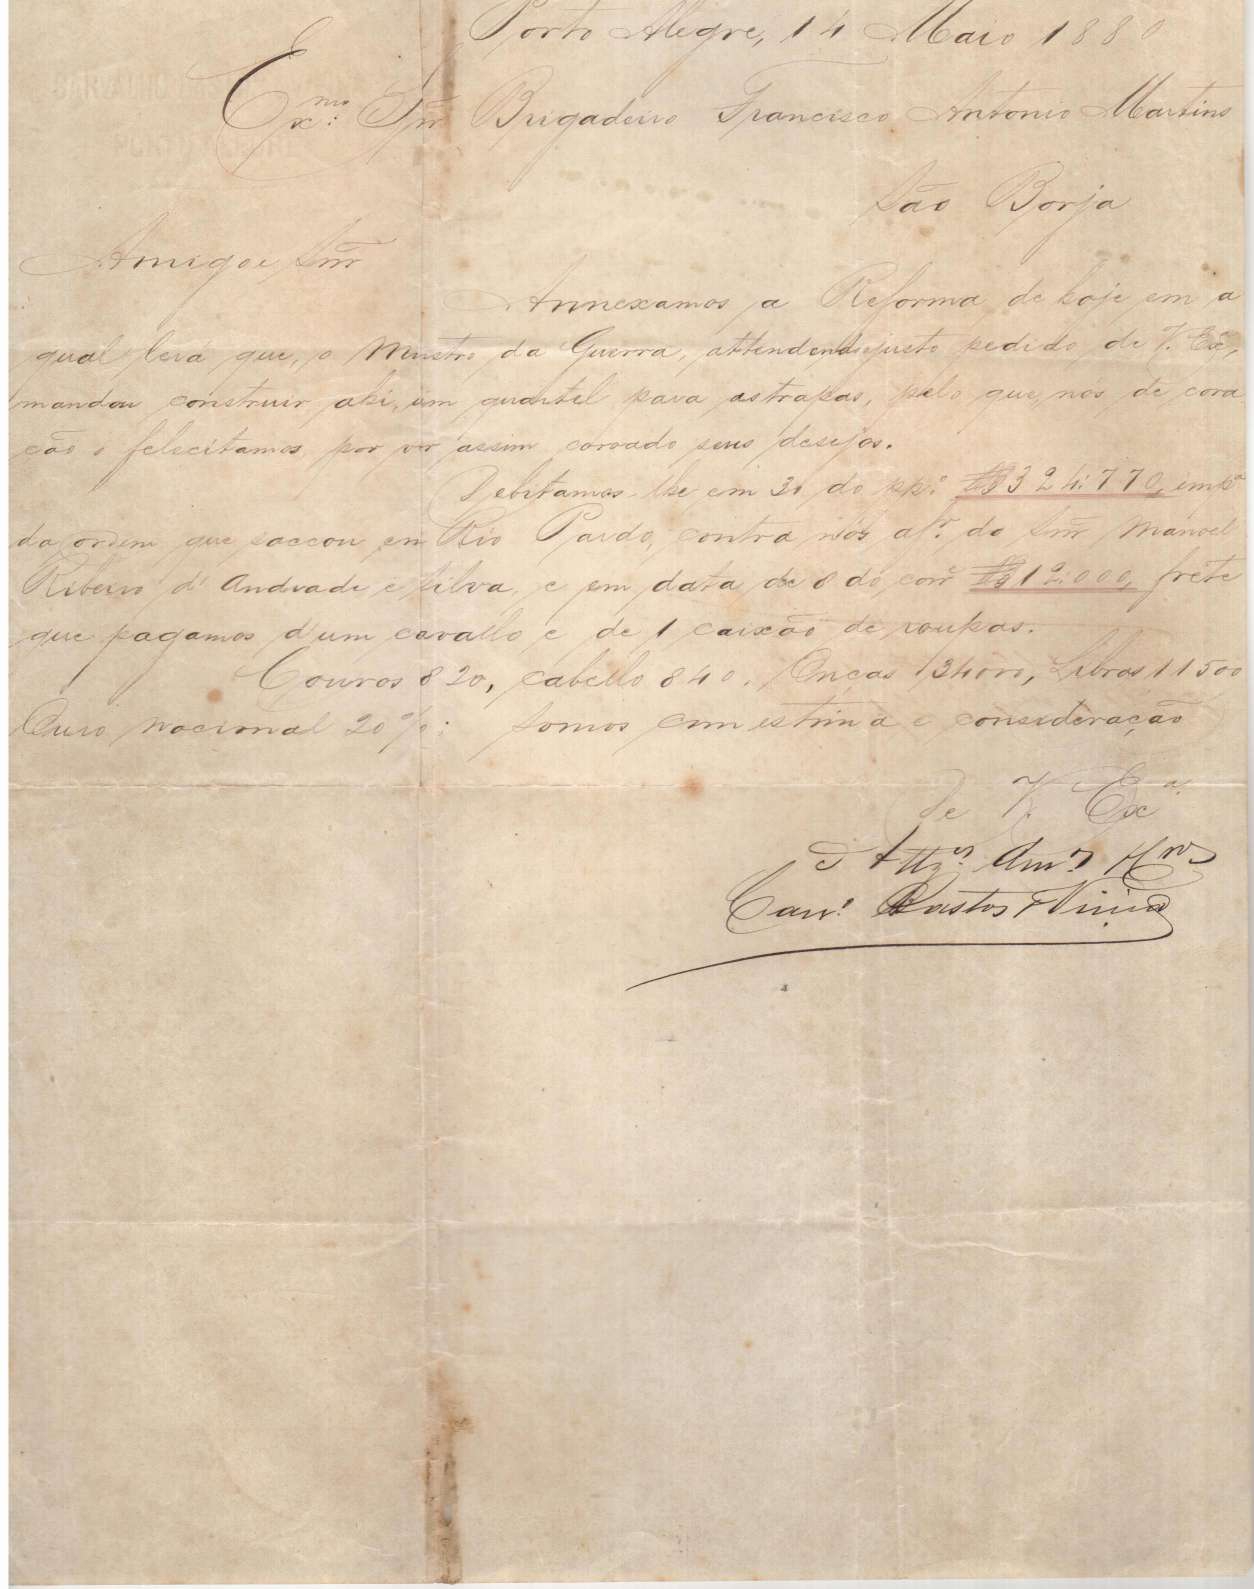 Porto Alegre, 14 Maio 1880
Ex.mo Snr Brigadeiro Francisco Antonio Martins
São Borja
Amigo e Snr
Annexamos a Reforma de hoje em a
qual lerá que, o Menistro da Guerra, attendendo justo pedido de V. Ex.ª,
mandou construir ahi, um quartel para as tropas, pelo que, nós de cora
ção o felecitamos por ver assim coroado seus desejos.
Debitamos-lhe em 30 do pp.º R$ 324:770, imp.e
da ordem que saccou en Rio Pardo, contra nós a f.r do Snr Manoel
Ribeiro d'Andrade e Silva, e em data de 8 do corr.e R$ 12:000, frete
que pagamos d'um cavallo e de 1 caixão de roupas.
Couros 820, cabello 840. Onças 34000, Libras 11500
Ouro nacional 20%: Somos com estima e consideração
De V. Ex.ª
Att.os Am.os
Bastos